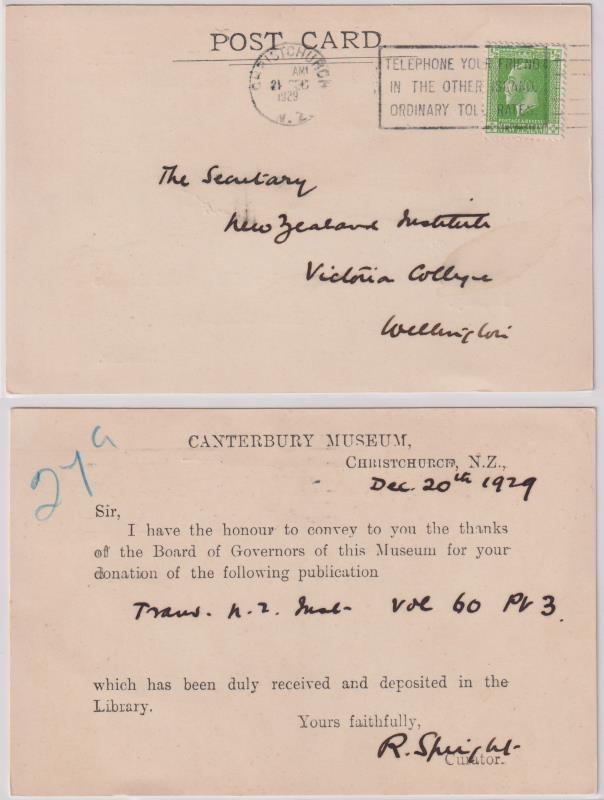 POST CARD
CHRISTCHURCH
AM
21 DEC
1929
N.Z.
TELEPHONE YOUR FRIENDS
IN THE OTHER ISLAND.
ORDINARY TOLL RATES
POSTAGE & REVENUE
The Secretary
New Zealand Institute
Victoria College
Wellington
27a
CANTERBURY MUSEUM,
CHRISTCHURCH, N.Z.,
Dec. 20th 1929
Sir,
I have the honour to convey to you the thanks
of the Board of Governors of this Museum for your
donation of the following publication
Trans. N.Z. Inst. Vol 60 Pt 3.
which has been duly received and deposited in the
Library.
Yours faithfully,
R. Speight
Curator.